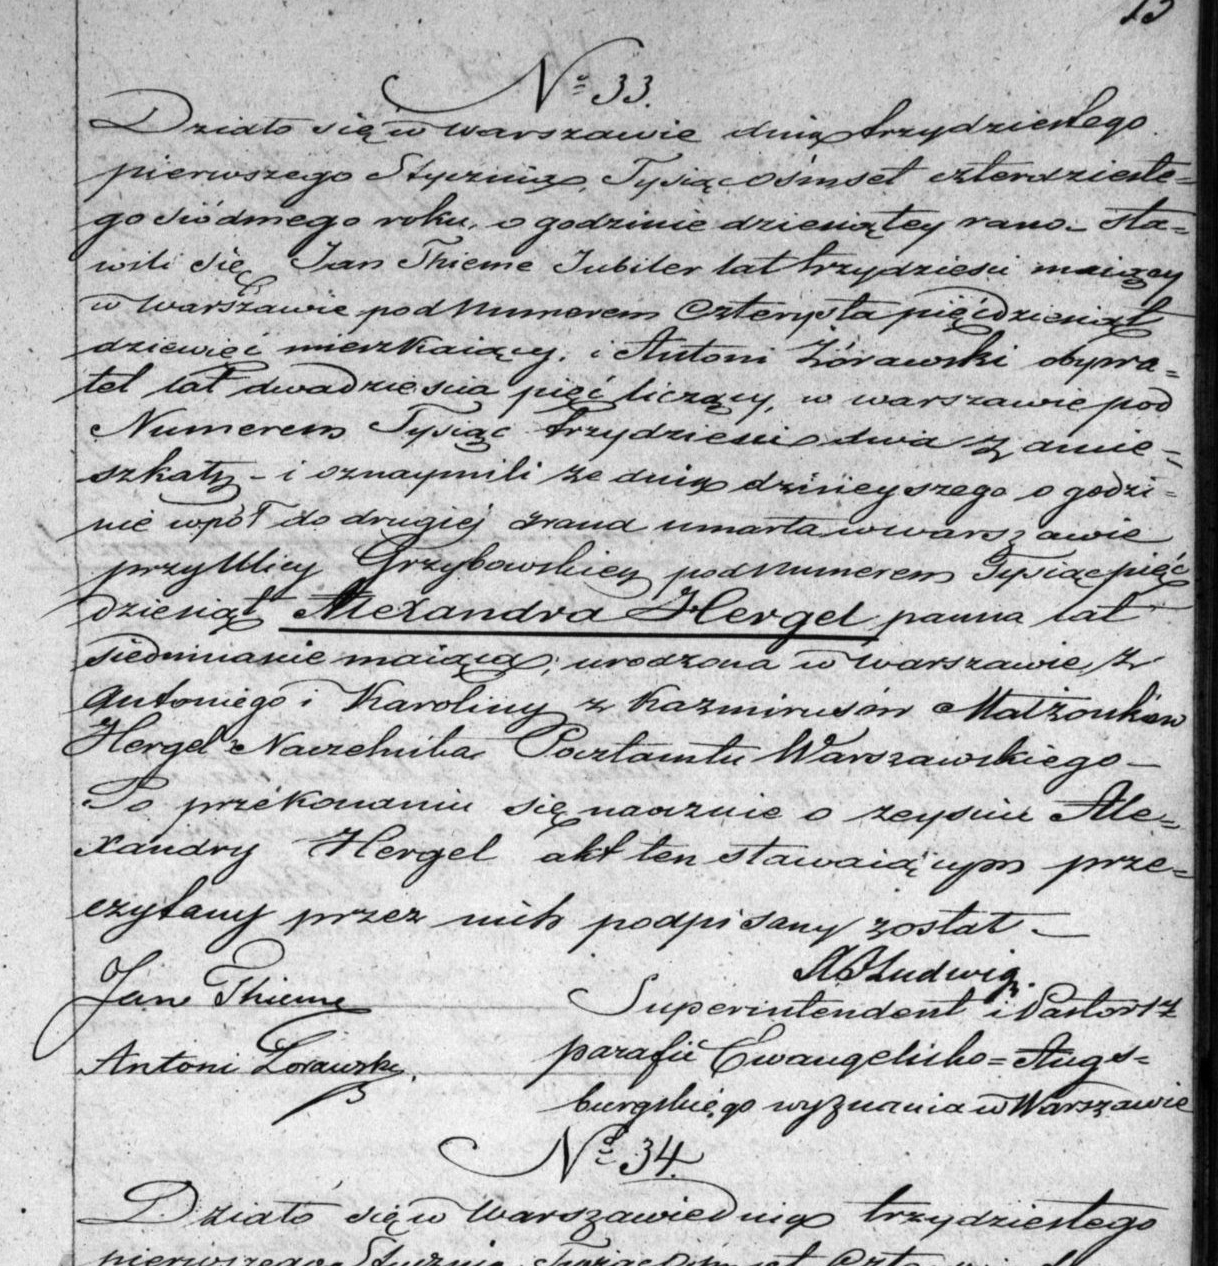 15
№ 33.
Działo się w Warszawie dnia trzydziestego
pierwszego Stycznia, Tysiąc ośmset czterdzieste=
go siódmego roku, o godzinie dziewiątey rano - sta=
wili się Jan Thieme Jubiler lat trzydzieści maiący
w Warszawie pod Numerem Czterysta pięćdziesiąt
dziewięć mieszkaiący, i Antoni Żórawski obywa=
tel lat dwadzieścia pięć liczący, w Warszawie pod
Numerem Tysiąc trzydzieści dwa zamie=
szkały - i oznaymili że dnia dzisieyszego o godzi=
nie wpół do drugiej zrana umarła w Warszawie
przy Ulicy Grzybowskiey pod Numerem Tysiąc pięć
dziesiąt Alexandra Hergel panna lat
siedmnaście maiąca, urodzona w Warszawie, z
Antoniego i Karoliny z Kazmirusów Małżonków
Hergel Naczelnika Pocztamtu Warszawskiego -
Po przekonaniu się naocznie o zeyściu Ale=
xandry Hergel akt ten stawaiącym prze=
czytany przez nich podpisany został -
Jan Thieme
Antoni Żorawski.
Ludwig
Superintendent i Pastor
parafii Ewangelicko = Augs=
burgskiego wyznania w Warszawie
№ 34.
Działo się w Warszawie dnia trzydziestego
pierwszego Stycznia, Tysiąc ośmset